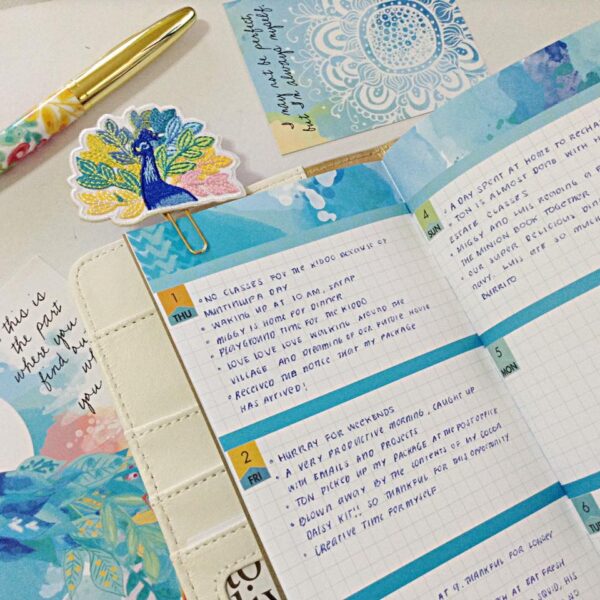 I may not be perfect,
but I'm always myself.
this is
the part
where you
find ou
wh
you
1
THU
• NO CLASSES FOR THE KIDDO BECAUSE OF
MUNTINLUPA DAY
• WAKING UP AT 10 AM, SARAP
• MIGGY IS HOME FOR DINNER
• PLAYGROUND TIME FOR THE KIDDO
• LOVE LOVE LOVE WALKING AROUND THE
VILLAGE AND DREAMING OF OUR FUTURE HOUSE
• RECEIVED THE NOTICE THAT MY PACKAGE
HAS ARRIVED!
2
FRI
• HURRAY FOR WEEKENDS
• A VERY PRODUCTIVE MORNING. CAUGHT UP
WITH EMAILS AND PROJECTS
• TON PICKED UP MY PACKAGE AT THE POST OFFICE
• BLOWN AWAY BY THE CONTENTS OF MY COCOA
DAISY KIT!! SO THANKFUL FOR THIS OPPORTUNITY
• CREATIVE TIME FOR MYSELF
AT 9. THANKFUL FOR LONGER
4
SUN
• A DAY SPENT AT HOME TO RECHA
• TON IS ALMOST DONE WITH H
ESTATE CLASSES
• MIGGY AND LUIS READING A
THE MINION BOOK TOGETHER
• OUR SUPER DELICIOUS DIN
NAVY. LUIS ATE SO MUCH
BURRITO
5
MON
6
TUE
AT EAT FRESH
SQUID, HIS
NO